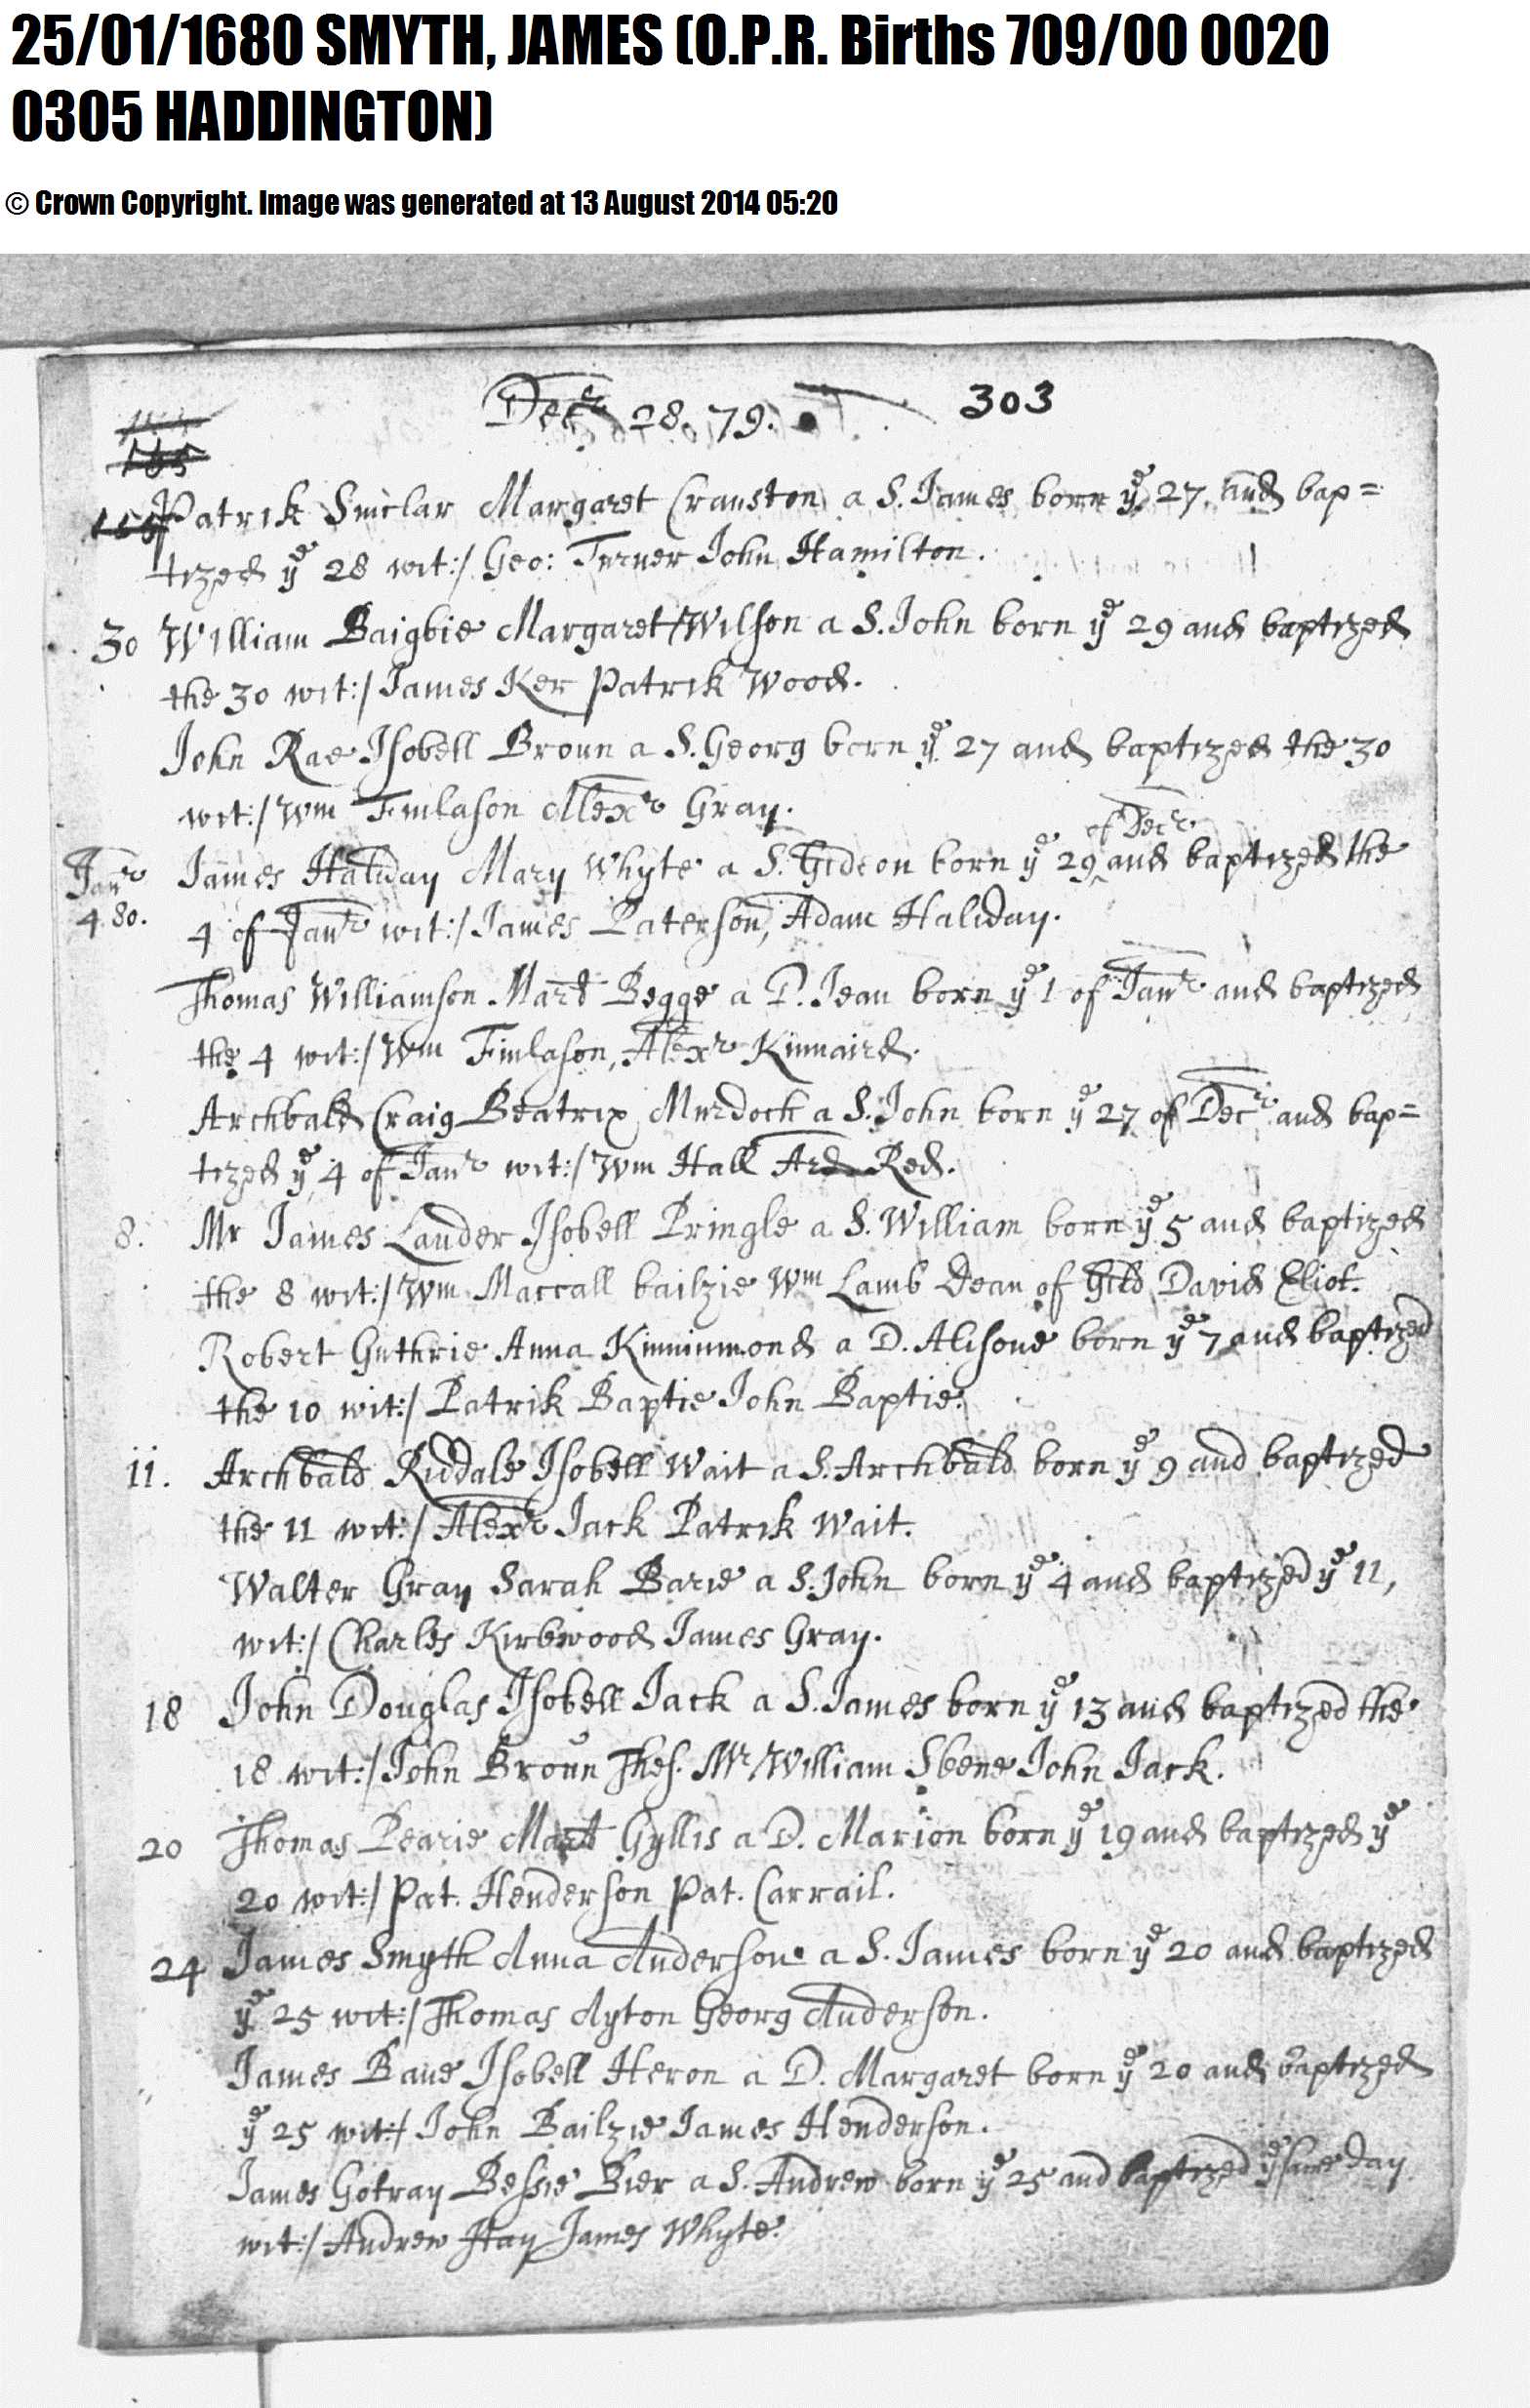 25/01/1680 SMYTH, JAMES (O.P.R. Births 709/00 0020
0305 HADDINGTON)
© Crown Copyright. Image was generated at 13 August 2014 05:20
Decr 28. 79. 303
165
Patrik Sinclar Margaret Cranston a S. James born ye 27 and bap=
tized ye 28 wit:/ Geo: Turner John Hamilton.
30 William Baigbie Margaret Wilson a S. John born ye 29 and baptized
the 30 wit:/ James Ker Patrik Wood.
John Rae Isobell Broun a S. Georg born ye 27 and baptized the 30
wit:/ Wm Finlason Alexr Gray.
of Decr
Janr James Haliday Mary Whyte a S. Gideon born ye 29 and baptized the
4 80. 4 of Janr wit:/ James Paterson, Adam Haliday.
Thomas Williamson Mart Begge a D. Jean born ye 1 of Janr and baptized
the 4 wit:/ Wm Finlason, Alexr Kinnaird.
Archbald Craig Beatrix Murdoch a S. John born ye 27 of Decr and bap=
tized ye 4 of Janr wit:/ Wm Hall Ard Red.
8. Mr James Lauder Isobell Pringle a S. William born ye 5 and baptized
the 8 wit:/ Wm Maccall bailzie Wm Lamb Dean of Gild David Eliot.
Robert Guthrie Anna Kinninmond a D. Alisone born ye 7 and baptized
the 10 wit:/ Patrik Baptie John Baptie.
11. Archbald Ridale Isobell Wait a S. Archbald born ye 9 and baptized
the 11 wit:/ Alexr Jack Patrik Wait.
Walter Gray Sarah Barie a S. John born ye 4 and baptized ye 11,
wit:/ Charles Kirkwood James Gray.
18 John Douglas Isobell Jack a S. James born ye 13 and baptized the
18 wit:/ John Broun Thes. Mr William Skene John Jack.
20 Thomas Pearie Mart Gyllis a D. Marion born ye 19 and baptized ye
20 wit:/ Pat. Henderson Pat. Carrail.
24 James Smyth Anna Anderson a S. James born ye 20 and baptized
ye 25 wit:/ Thomas Ayton Georg Anderson.
James Bane Isobell Heron a D. Margaret born ye 20 and baptized
ye 25 wit:/ John Bailzie James Henderson.
James Gotray Bessie Bier a S. Andrew born ye 25 and baptized ye same day
wit:/ Andrew Hay James Whyte.